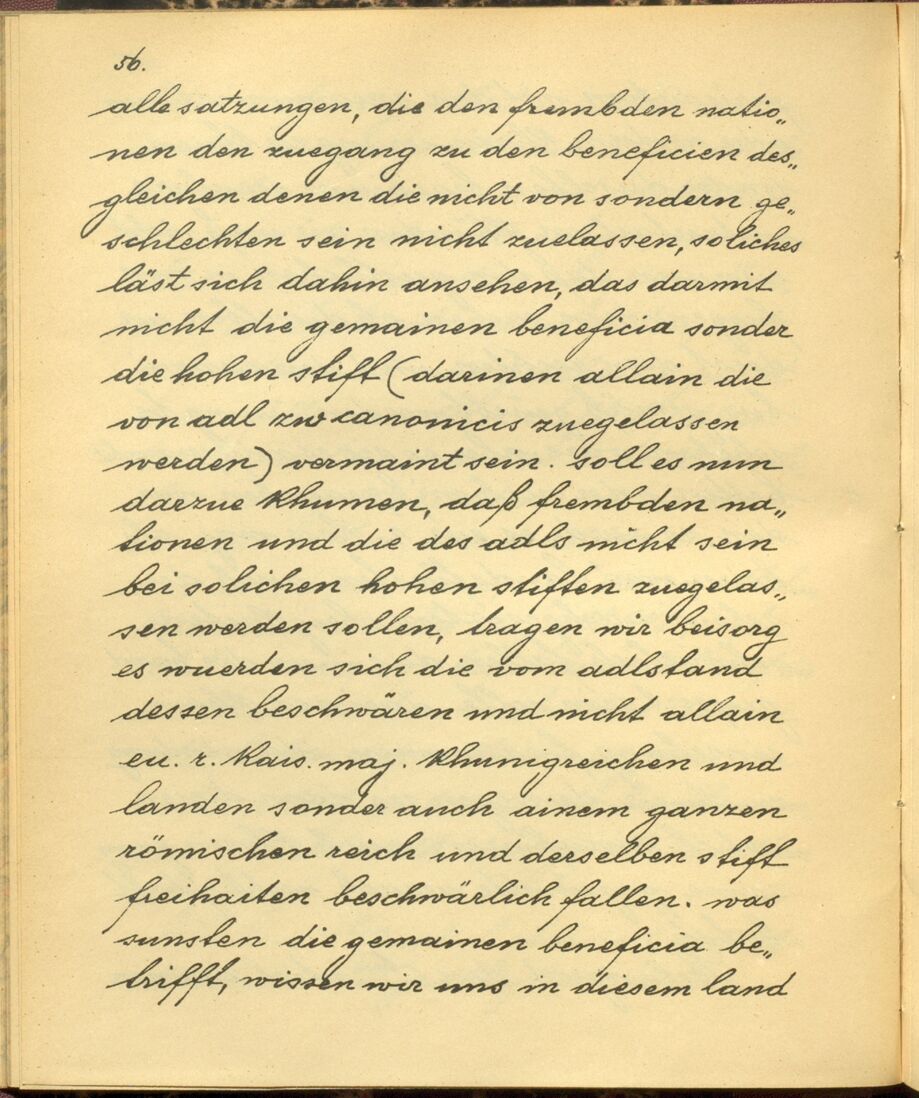 56.
alle satzungen, die den frembden natio„
nen den zuegang zu den beneficien des„
gleichen denen die nicht von sondern ge„
schlechten sein nicht zuelassen, soliches
läst sich dahin ansehen, das darmit
nicht die gemainen beneficia sonder
die hohen stift (darinen allain die
von adl zw canonicis zuegelassen
werden) vermaint sein. soll es nun
darzue khumen, daß frembden na„
tionen und die des adls nicht sein
bei solichen hohen stiften zuegelas„
sen werden sollen, tragen wir beisorg
es wuerden sich die vom adlstand
dessen beschwären und nicht allain
eu. r. kais. maj. khunigreichen und
landen sonder auch ainem ganzen
römischen reich und derselben stift
freihaiten beschwärlich fallen. was
sunsten die gemainen beneficia be„
trifft, wissen wir uns in diesem land